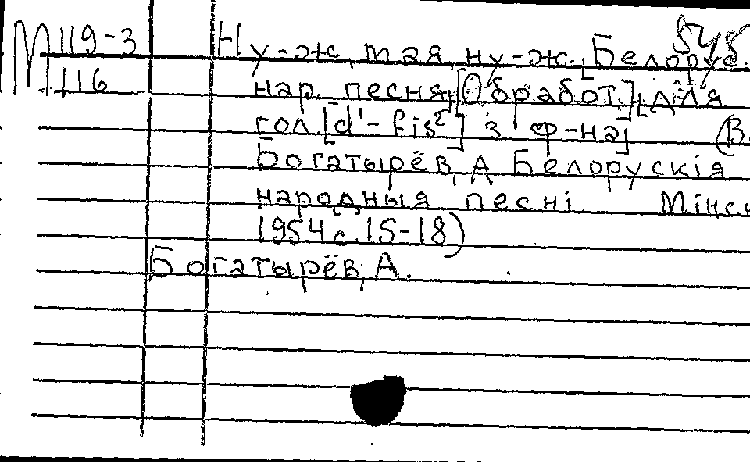 М 119-3
116
545
Ну-ж, мая ну-ж. Белорус.
нар. песня, [Обработ.] для
гол. [d'-fis²] з ф-на] (В
Богатырёв, А. Белорускія
народныя песні Мінск
1954 с. 15-18)
Богатырёв, А.